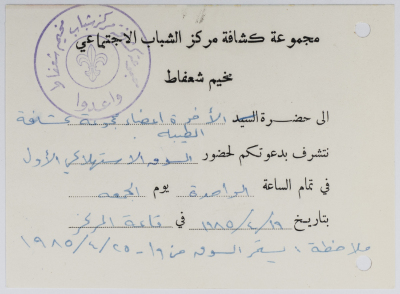 مجموعة كشافة مركز الشباب الاجتماعي
مخيم شعفاط
واعدوا
الى حضرة السيد الأخوة اعضاء مجموعة كشافة
الطيبه
نتشرف بدعوتكم لحضور السوق الاستهلاكي الأول
في تمام الساعة الواحدة يوم الجمعه
بتاريخ ١٩٨٥/٤/١٩ في قاعة المركز
ملاحظة : يستمر السوق من ١٩-١٩٨٥/٤/٢٥